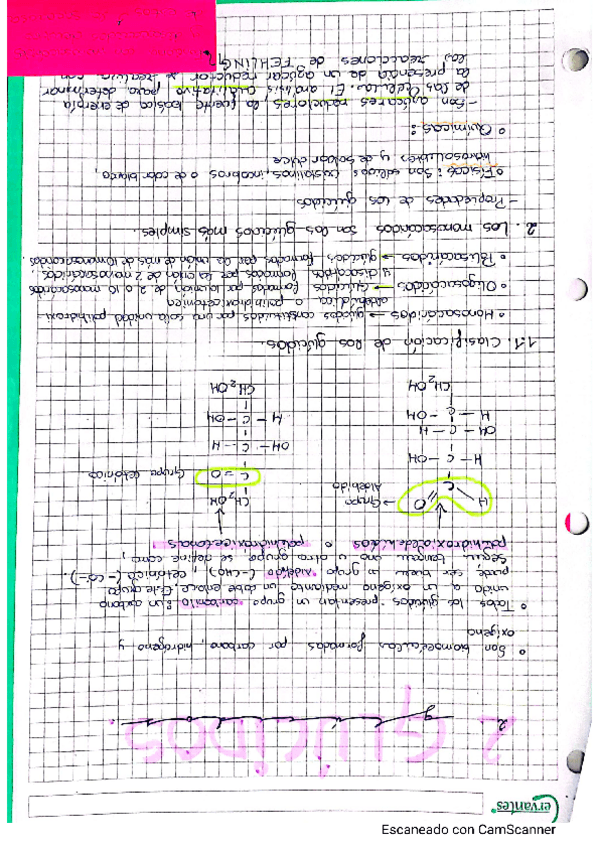 Cervantes
2 GLÚCIDOS
2. glúcidos.
• Son biomoléculas formadas por carbono, hidrógeno y
oxígeno
• Todos los glúcidos presentan un grupo carbonilo: un carbono
unido a un oxígeno mediante un doble enlace. Este grupo
puede ser un grupo aldehído (-CHO), cetónico (-CO-).
según tengan uno u otro grupo, se define como,
polihidroxialdehídos o polihidroxicetonas
H O → Grupo Aldehído
C
H - C - OH
OH - C - H
H - C - OH
CH₂OH
CH₂OH
C = O Grupo cetónico
OH - C - H
H - C - OH
CH₂OH
1.1. Clasificación de los glúcidos.
• Monosacáridos → glúcidos constituidos por una sola unidad polihidroxi
aldehídica o polihidroxicetónica
• Oligosacáridos → Glúcidos formados por la unión de 2 a 10 monosacáridos
y disacáridos formados por la unión de 2 monosacáridos,
• Polisacáridos → glúcidos formados por la unión de más de 10 monosacáridos.
2. Los monosacáridos son los glúcidos más simples.
- Propiedades de los glúcidos
• Físicas: Son sólidos cristalinos, incoloros, o de color blanco,
hidrosolubles y de sabor dulce
• Químicas:
- Son azúcares reductores la fuente básica de energía
de las células. El análisis cualitativo para determinar
la presencia de un azúcar reductor se realiza con
las reacciones de FEHLING
Escaneado con CamScanner